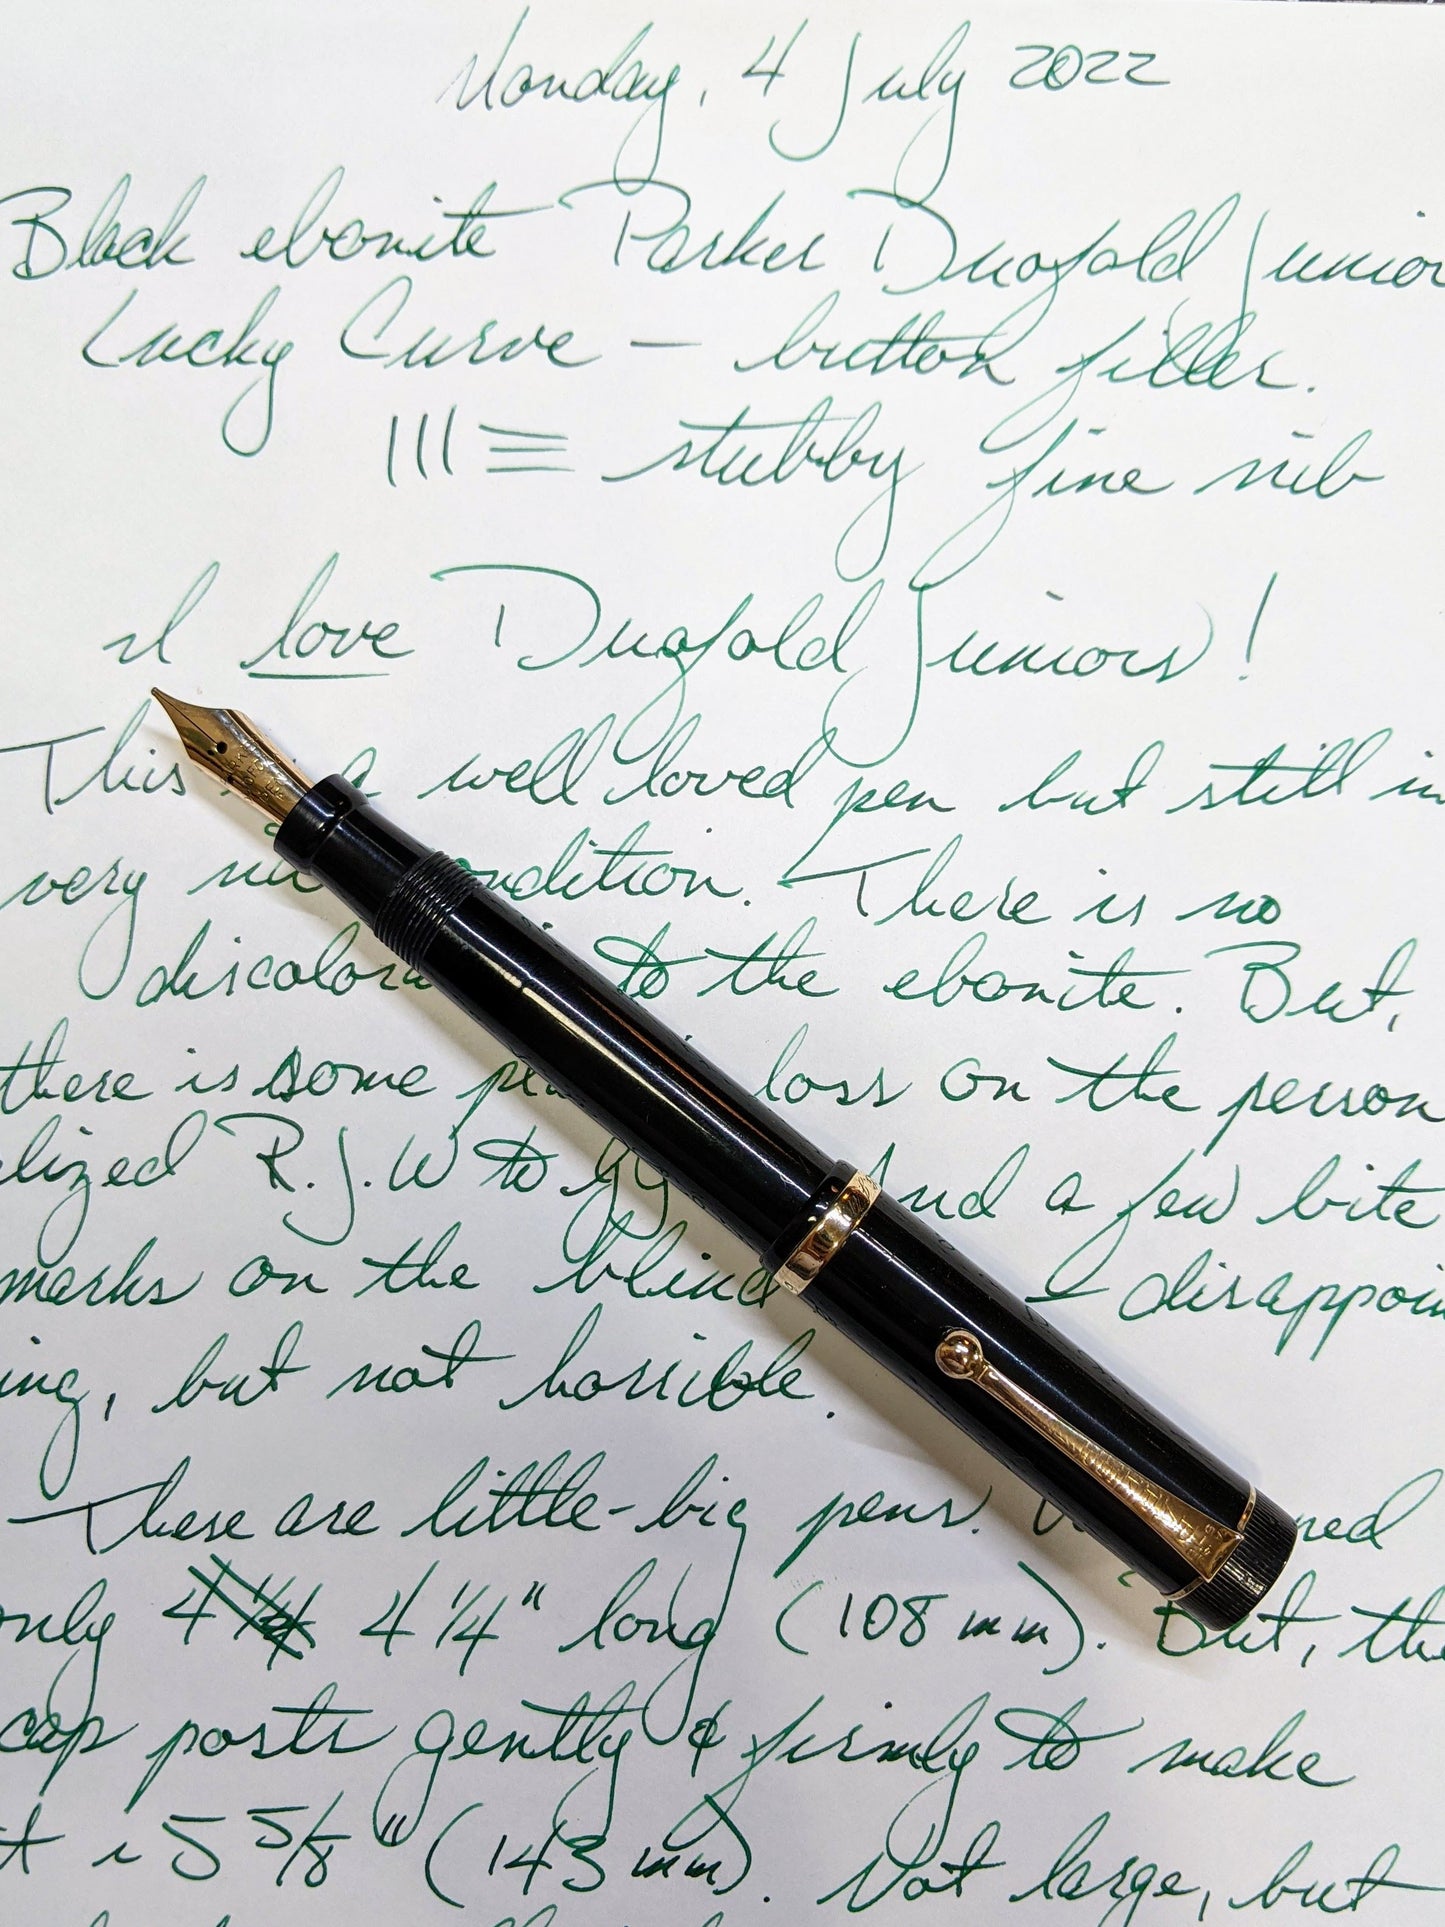 Monday, 4 July 2022
Black ebonite Parker Duofold Junior
Lucky Curve — button filler.
||| ≡ stubby fine nib
I love Duofold Juniors!
This a well loved pen but still in
very condition. There is no
to the ebonite. But,
there is some loss on the person
alized R.J.W to And a few bite
marks on the blind disappoint
ing, but not horrible.
These are little-big pens.
only 4 1/4 4 1/4" long (108 mm). But, the
cap posts gently & firmly to make
it 5 5/8" (143 mm). Not large, but